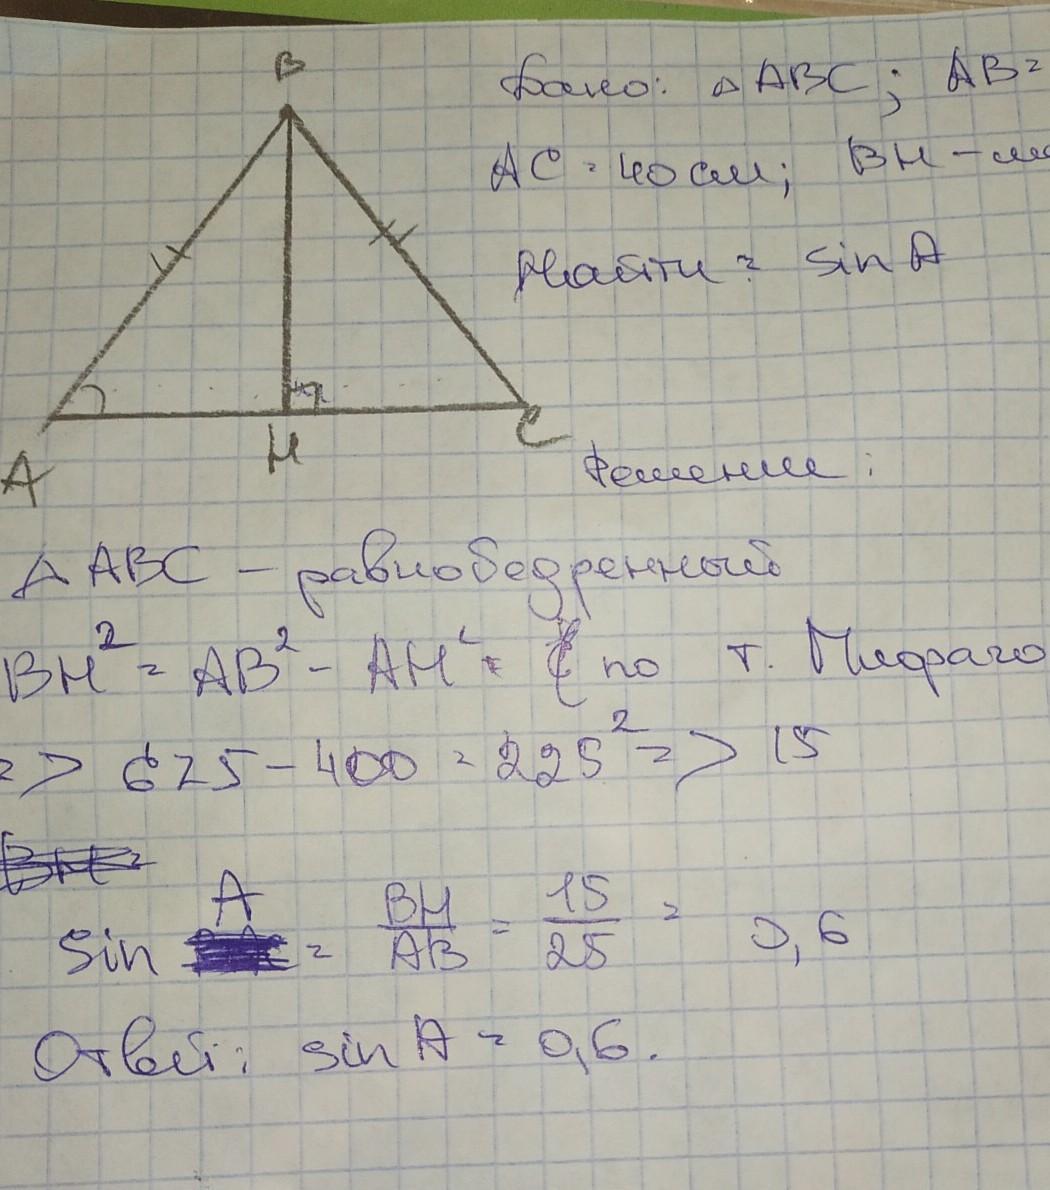 B
Дано: △ ABC; AB =
AC = 40 см; BH –
Найти = sin A
A H C
Решение:
△ ABC – равнобедренный
BH² = AB² – AH² = по т. Пифаго
=> 625 – 400 = 225² => 15
sin A = BH/AB = 15/25 = 0,6
Ответ: sin A = 0,6.